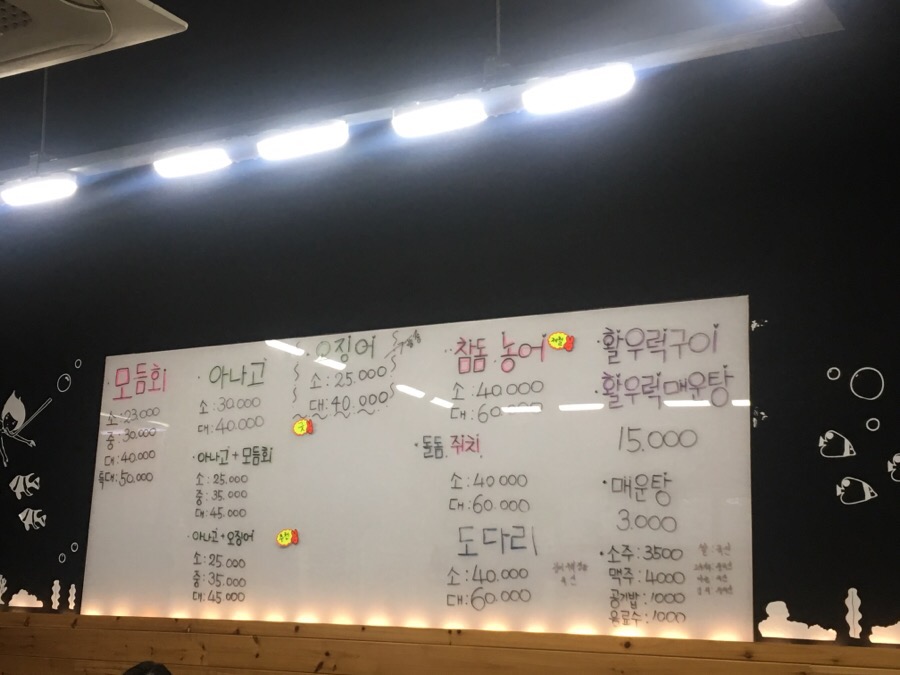 모듬회
소: 23.000
중: 30.000
대: 40.000
특대: 50.000
아나고
소: 30.000
대: 40.000
아나고 + 모듬회
소: 25.000
중: 35.000
대: 45.000
아나고 + 오징어
소: 25.000
중: 35.000
대: 45.000
오징어
소: 25.000
대: 40.000
참돔. 농어
소: 40.000
대: 60.000
돌돔. 쥐치
소: 40.000
대: 60.000
도다리
소: 40.000
대: 60.000
활우럭구이
활우럭매운탕
15.000
매운탕
3.000
소주: 3500
맥주: 4000
공기밥: 1000
음료수: 1000